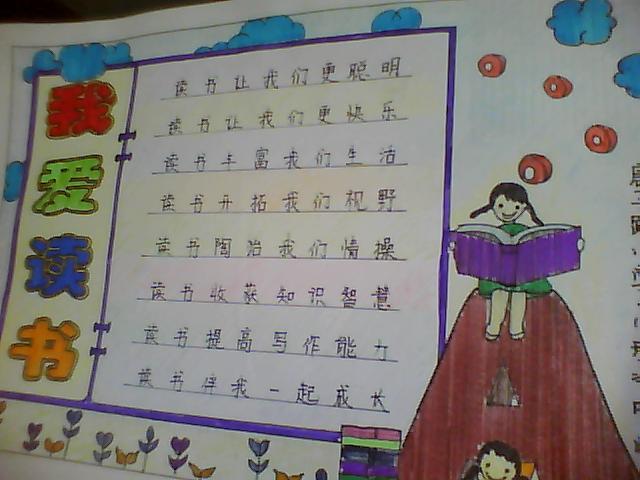 我爱读书
读书让我们更聪明
读书让我们更快乐
读书丰富我们生活
读书开拓我们视野
读书陶冶我们情操
读书收获知识智慧
读书提高写作能力
读书伴我一起成长